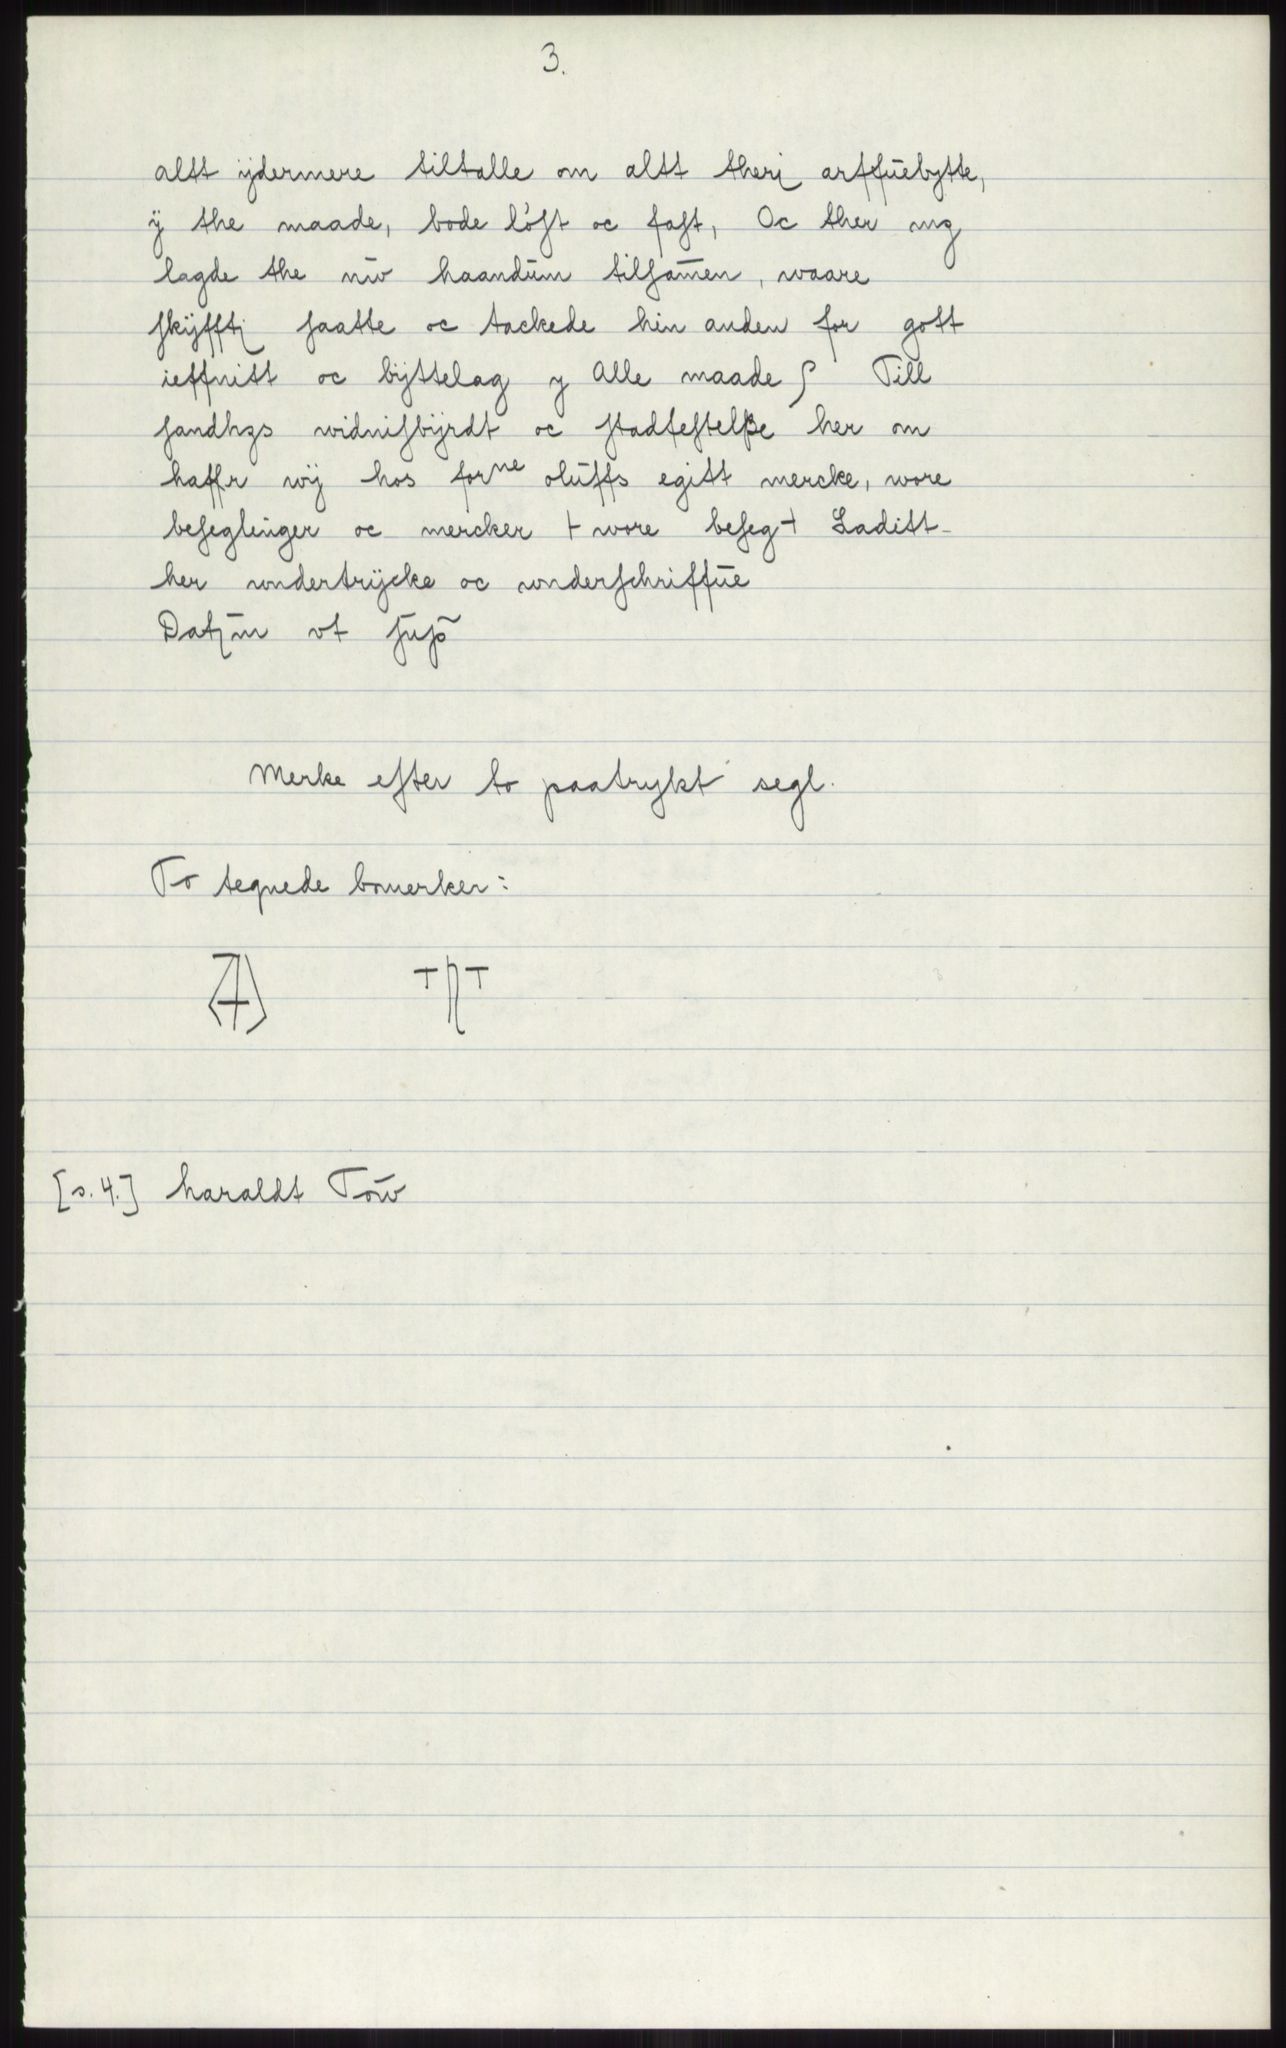 3.
altt ijdermere tiltalle om altt therj arffuebytte,
ÿ the maade, bode løst oc fast, Oc ther mz
lagde the nw haandum tilsamen, waare
skijfftj saatte oc tackede hin anden for gott
ieffnitt oc bijttelag y Alle maade Till
sandhzs widnisbijrdt oc stadfestelsse her om
haffr wij hos forne oluffs egitt mercke, wore
beseglinger oc mercker + wore beseg + Laditt
her wndertrijcke oc wnderschriffue
Datum vt sup
Merke efter to paatrykt segl.
To tegnede bomerker:
[s. 4.] haraldt Tow